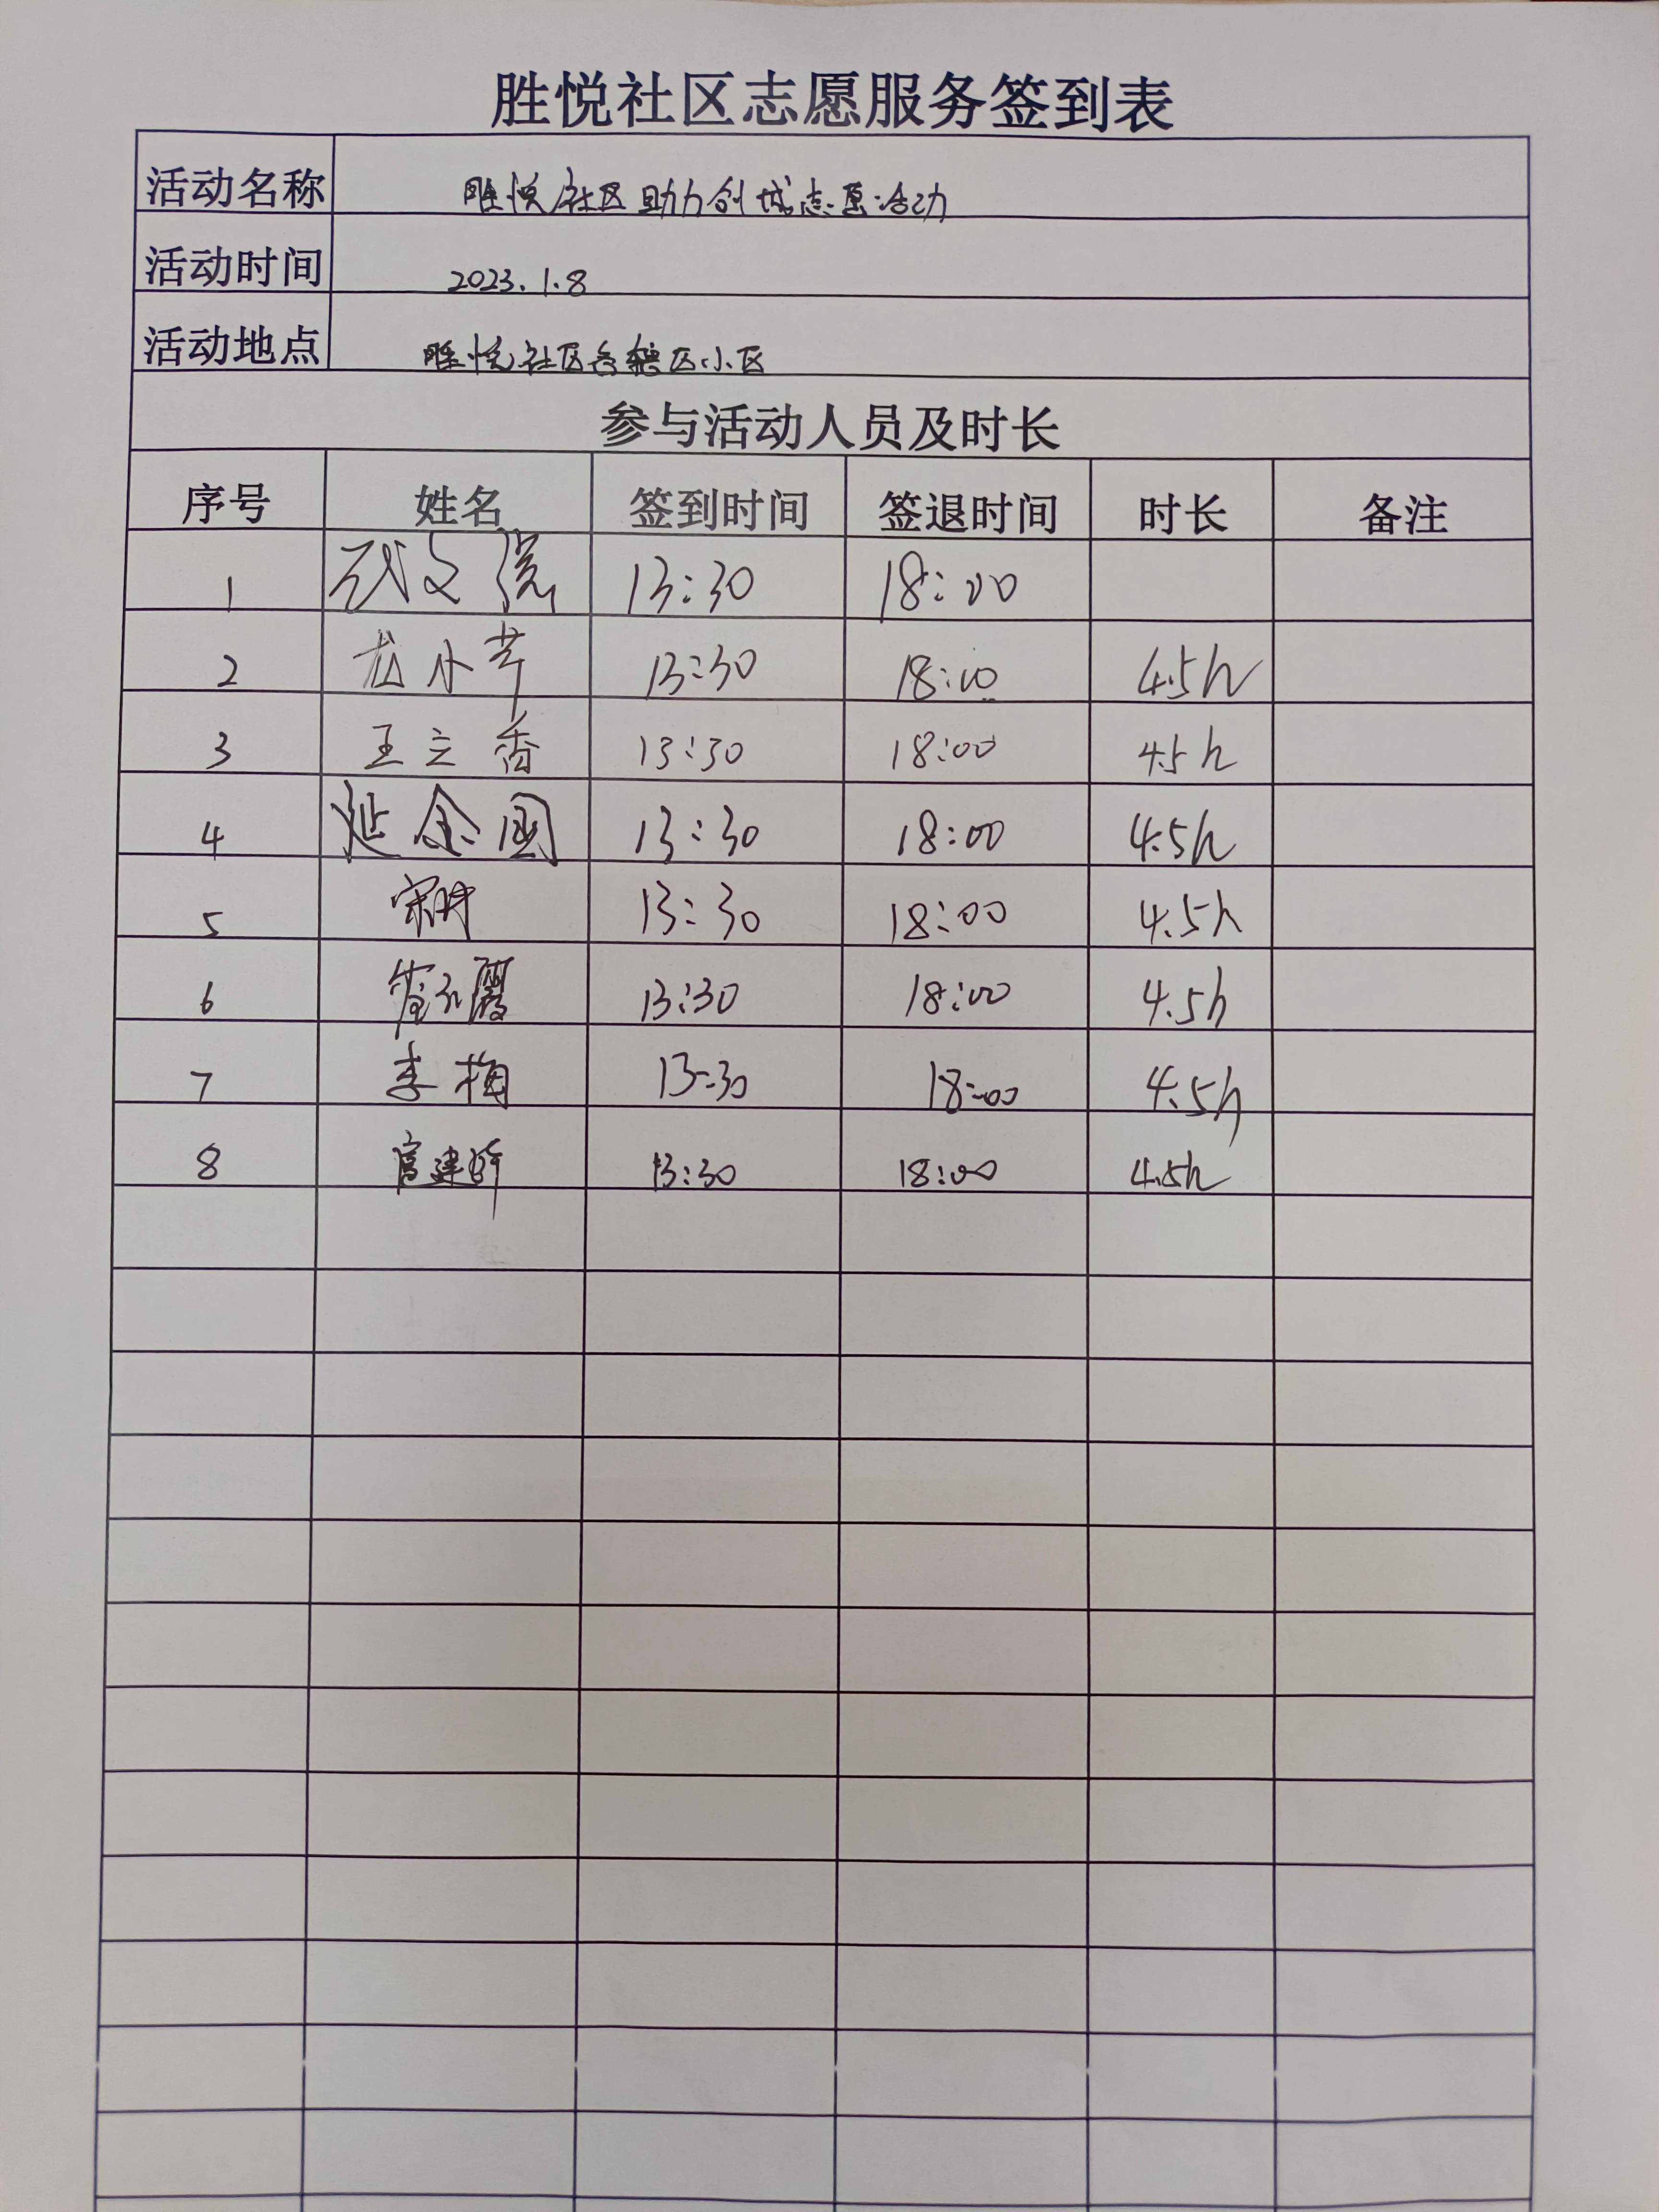 胜悦社区志愿服务签到表
活动名称 胜悦社区助力创城志愿活动
活动时间 2023.1.8
活动地点 胜悦社区各辖区小区
参与活动人员及时长
序号 姓名 签到时间 签退时间 时长 备注
1 13:30 18:00
2 13:30 18:00 4.5h
3 王立香 13:30 18:00 4.5h
4 延金国 13:30 18:00 4.5h
5 13:30 18:00 4.5h
6 13:30 18:00 4.5h
7 李梅 13:30 18:00 4.5h
8 13:30 18:00 4.5h